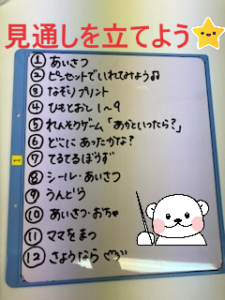 見通しを立てよう
① あいさつ
② ピンセットでいれてみよう♫
③ なぞりプリント
④ ひもとおし 1~9
⑤ れんそうゲーム「あかといったら?」
⑥ どこにあったかな?
⑦ てるてるぼうず
⑧ シール・あいさつ
⑨ うんどう
⑩ あいさつ・おち♥
⑪ ママをまつ
⑫ さようなら